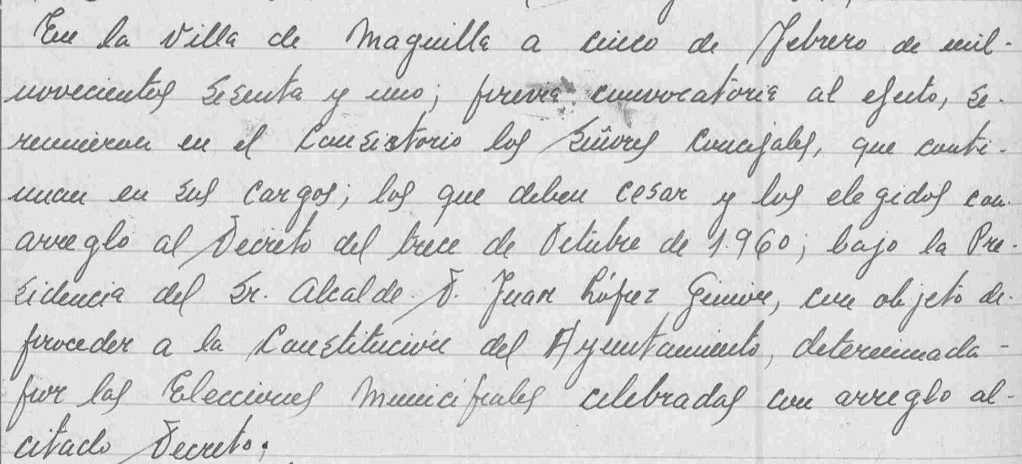 En la Villa de Maguilla a cinco de Febrero de mil-
novecientos sesenta y uno; previa convocatoria al efecto, se-
reunieron en el Consistorio los Señores Concejales, que conti-
nuan en sus cargos; los que deben cesar y los elegidos con
arreglo al Decreto del trece de Octubre de 1.960; bajo la Pre-
sidencia del Sr. Alcalde D. Juan López, con objeto de-
proceder a la Constitución del Ayuntamiento, determinada-
por las Elecciones Municipales celebradas con arreglo al-
citado Decreto;